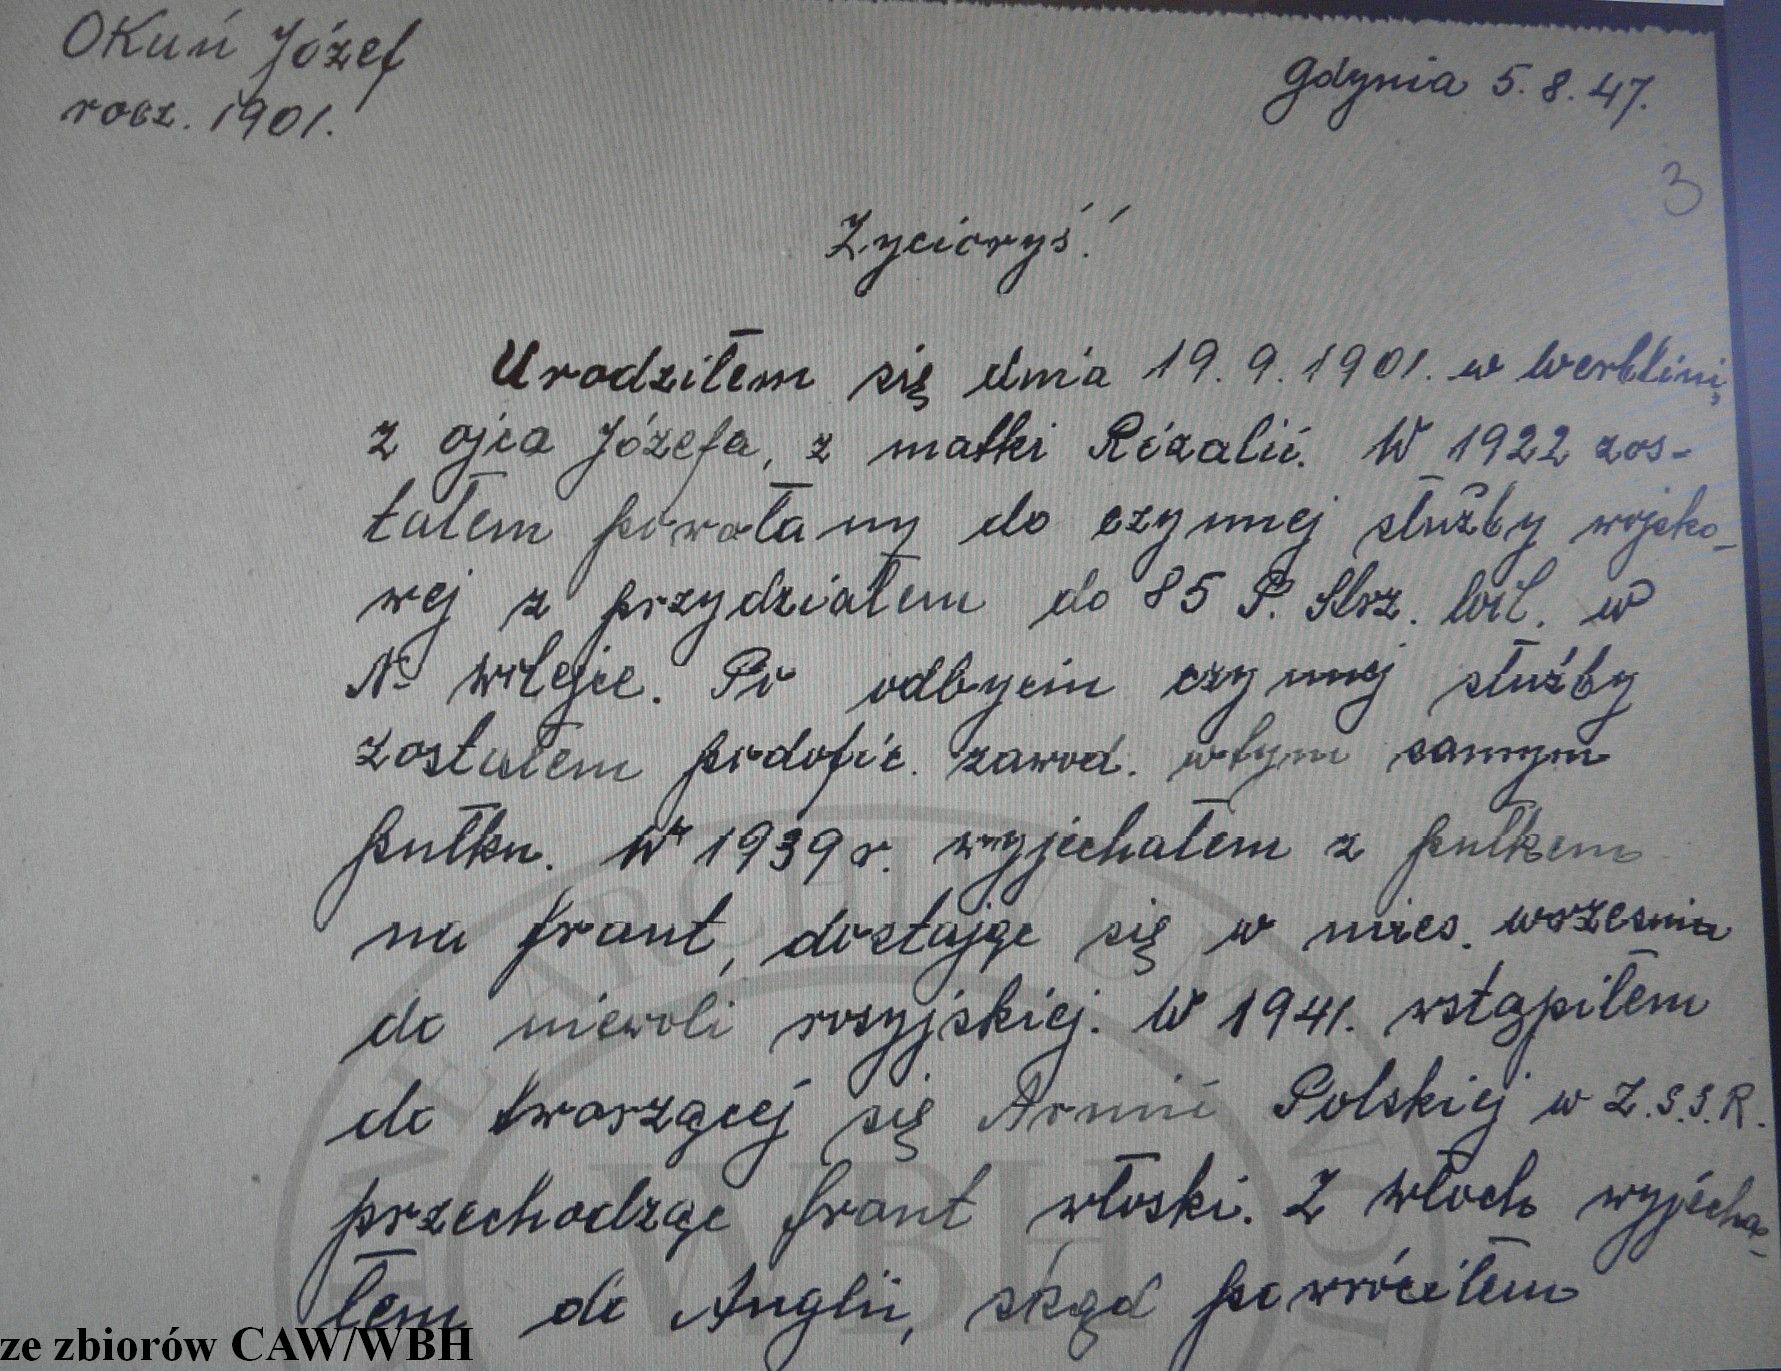 Okuń Józef
rocz. 1901.
Gdynia 5.8.47.
3
Życioryś!
Urodziłem się dnia 19.9.1901. w Werblini
z ojca Józefa, z matki Rózalii. W 1922 zos-
tałem powołany do czynnej służby wojsko-
wej z przydziałem do 85 P. Strz. Wil. w
N. Wilejce. Po odbyciu czynnej służby
zostałem podofic. zawod. wtym samym
pułku. W 1939 r. wyjechałem z pułkem
na front, dostając się w mies. wrzesnia
do niewoli rosyjskiej. W 1941. wstąpiłem
do tworzącej się Armii Polskiej w Z.S.S.R.
przechodząc front włoski. Z Włoch wyjecha-
łem do Anglii, skąd powróciłem
ze zbiorów CAW/WBH
ARCHIWUM
WBH